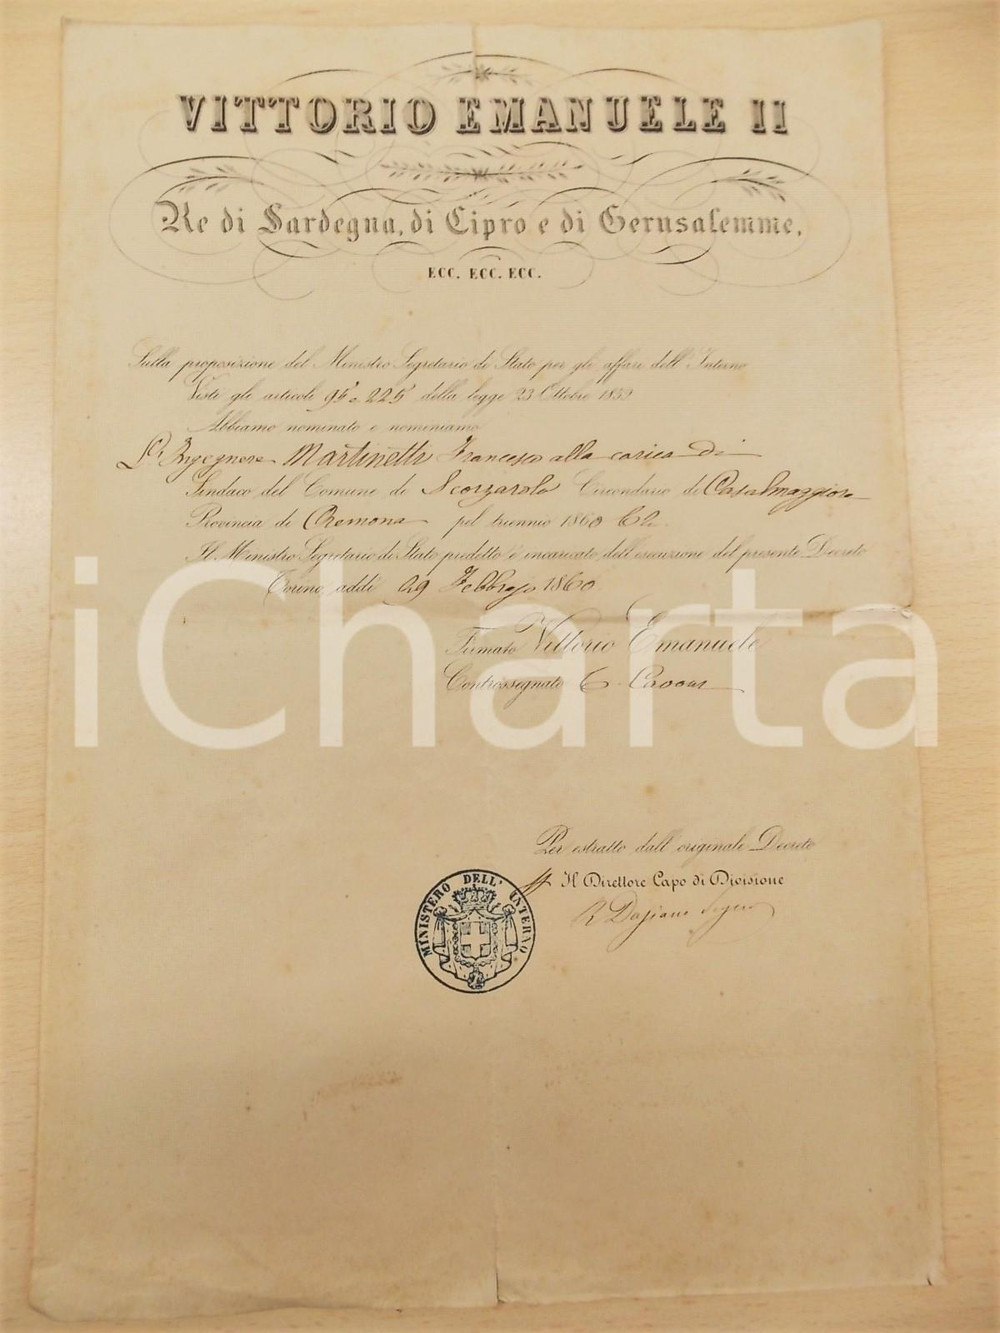 VITTORIO EMANUELE II
Re di Sardegna, di Cipro e di Gerusalemme,
ECC. ECC. ECC.
Sulla proposizione del Ministro Segretario di Stato per gli affari dell'Interno
Visti gli articoli 95 e 225 della legge 23 Ottobre 1859
Abbiamo nominato e nominiamo
L'Ingegnere Martinelli Francesco alla carica di
Sindaco del Comune di Scorzarolo Circondario di Casalmaggiore
Provincia di Cremona pel triennio 1860
Il Ministro Segretario di Stato predetto è incaricato dell'esecuzione del presente Decreto
Torino addì 29 Febbrajo 1860
Firmato Vittorio Emanuele
Controssegnato C. Cavour
Per estratto dall'originale Decreto
Il Direttore Capo di Divisione
MINISTERO DELL'INTERNO
iCharta